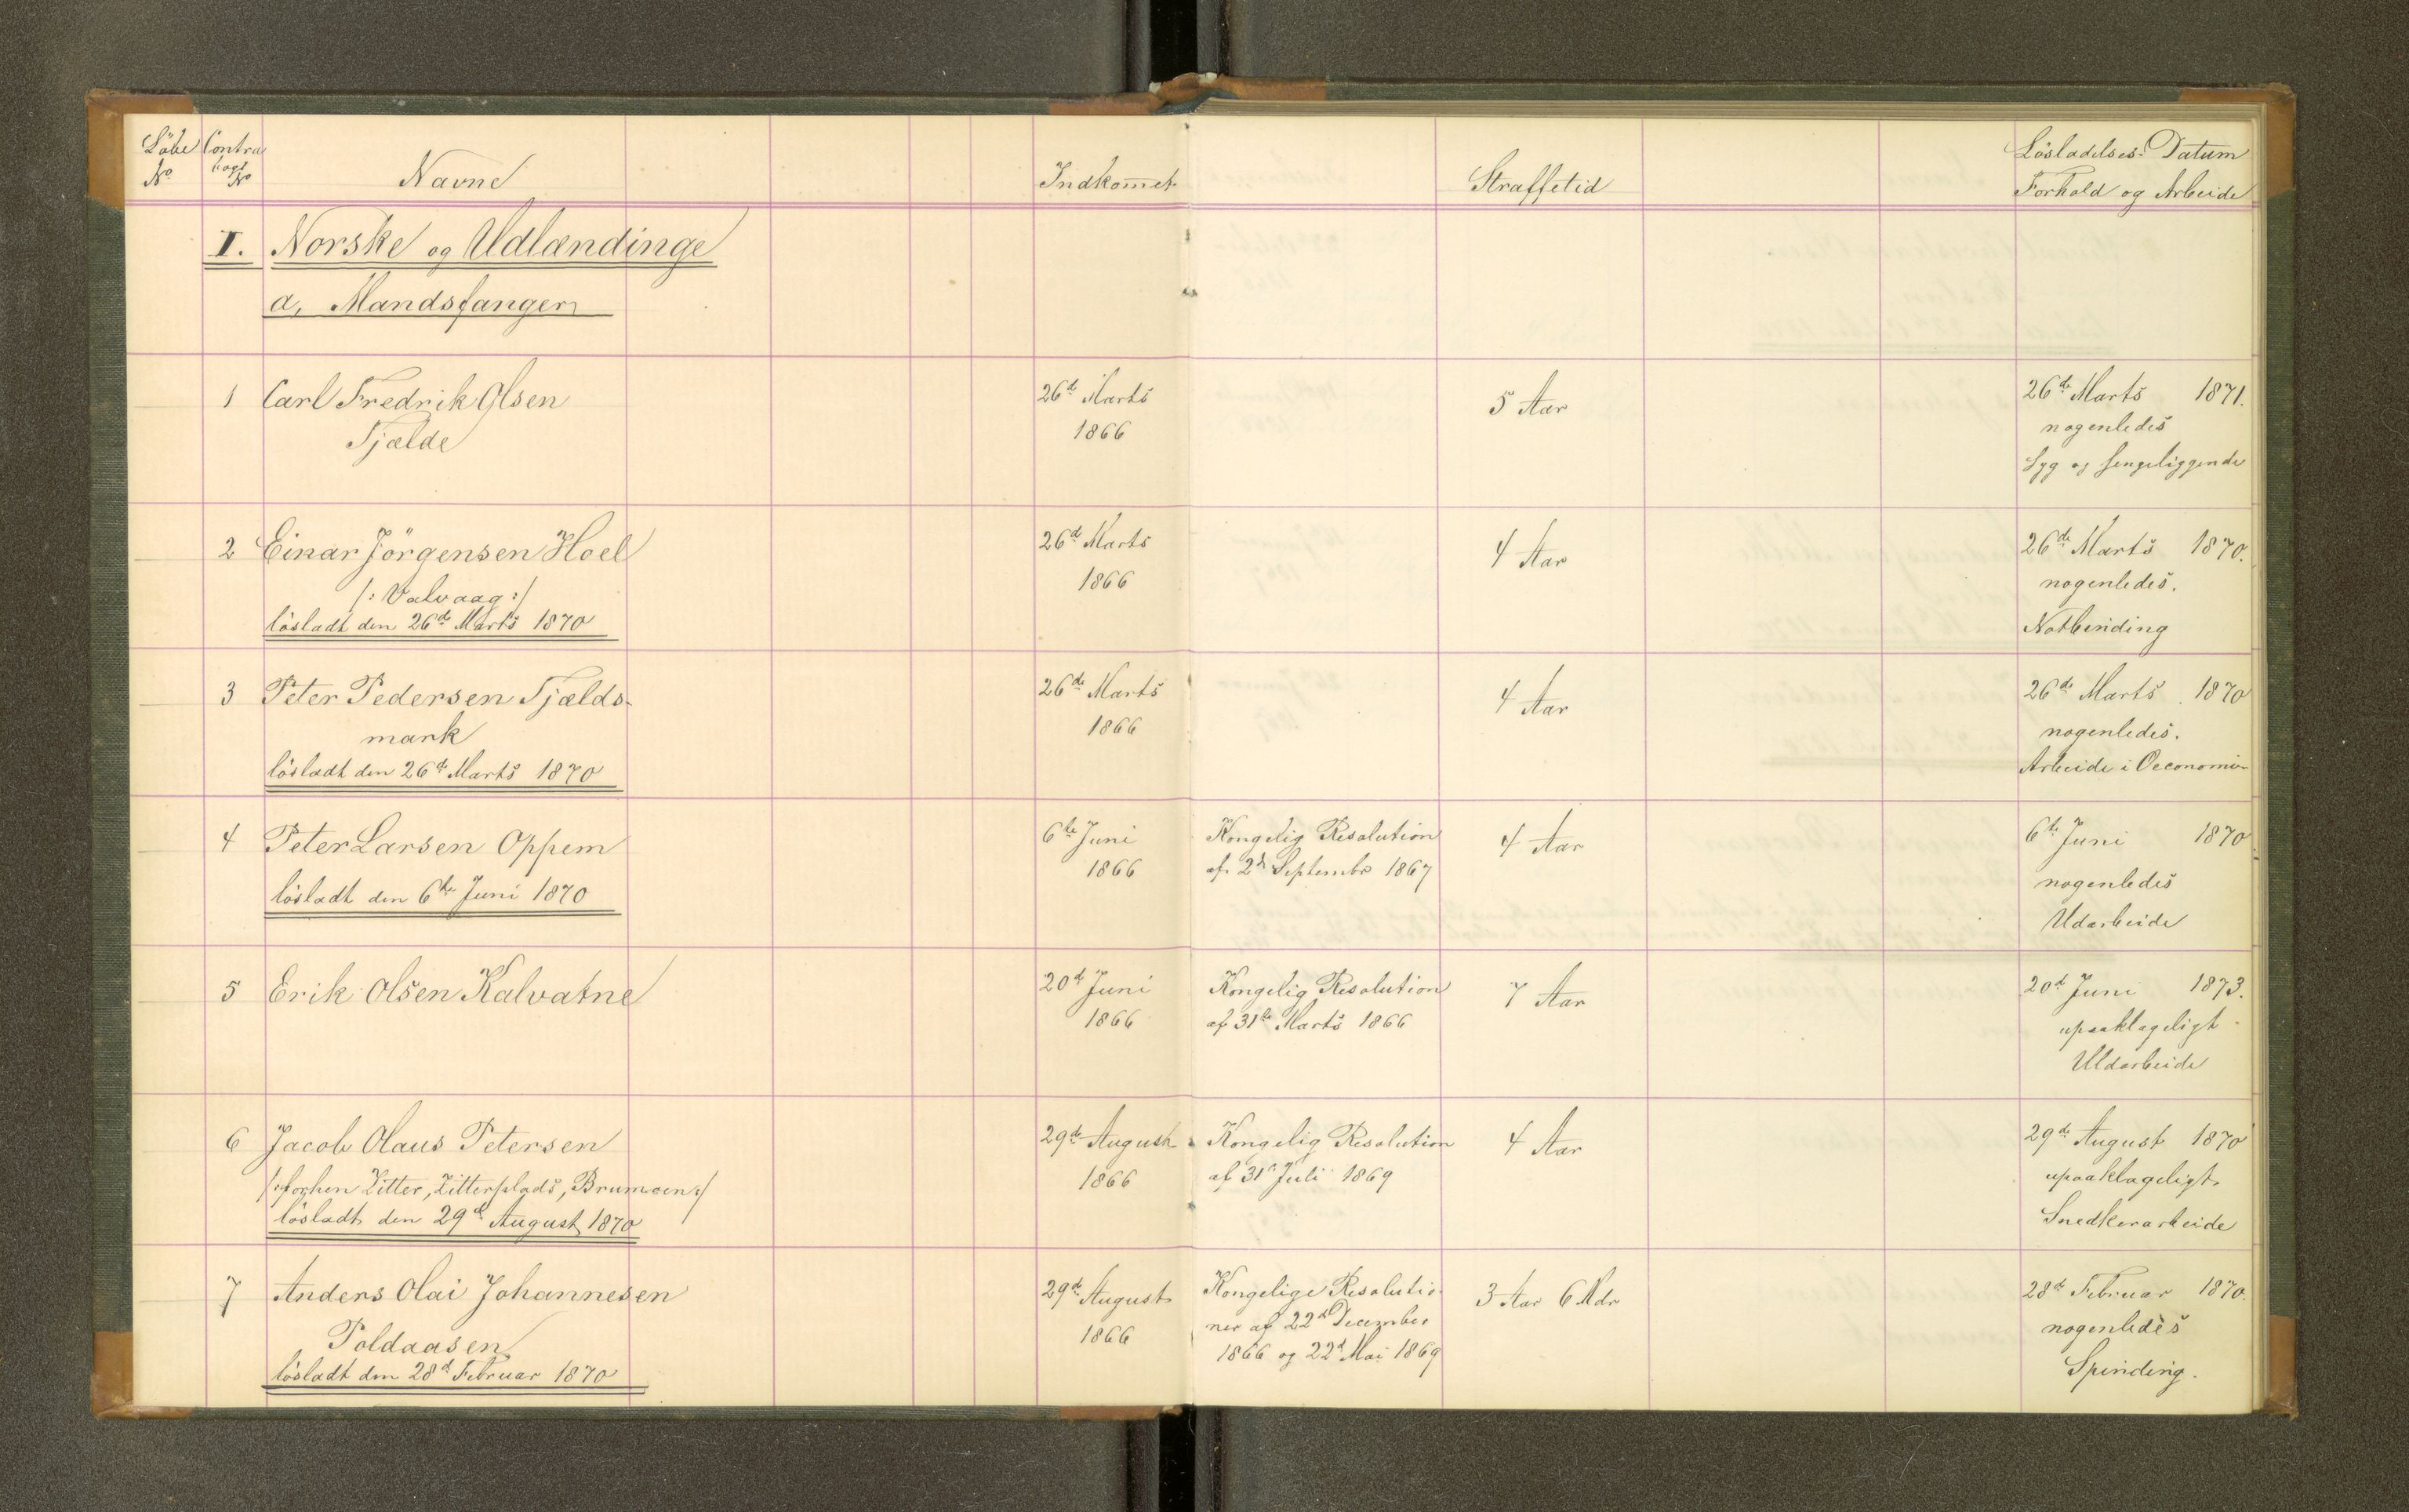 Löbe No
Contra bogs No
Navne
Indkomet
Straffetid
Lösladelses-Datum
Forhold og Arbeide
I. Norske og Udlændinge
a, Mandsfanger
1 Carl Fredrik Olsen
Tjælde
26de Marts
1866
5 Aar
26de Marts 1871.
nogenledes
Syg og sengeliggende
2 Einar Jörgensen Hoel
/: Valvaag :/
lösladt den 26de Marts 1870
26de Marts
1866
4 Aar
26de Marts 1870.
nogenledes.
Notbinding
3 Peter Pedersen Tjælds-
mark
lösladt den 26de Marts 1870
26de Marts
1866
4 Aar
26de Marts 1870
nogenledes.
Arbeide i Oeconomien
4 Peter Larsen Oppem
lösladt den 6te Juni 1870
6te Juni
1866
Kongelig Resolution
af 2den Septembr 1867
4 Aar
6te Juni 1870
nogenledes
Udarbeide
5 Erik Olsen Kalvatne
20de Juni
1866
Kongelig Resolution
af 31te Marts 1866
7 Aar
20de Juni 1873.
upaaklageligt
Uldarbeide
6 Jacob Olaus Petersen
/: forhen Zitter, Zitterplads, Brumoen :/
lösladt den 29de August 1870
29de August
1866
Kongelig Resolution
af 31te Juli 1869
4 Aar
29de August 1870
upaaklageligt
Snedkerarbeide
7 Anders Olai Johannesen
Poldaasen
lösladt den 28de Februar 1870
29de August
1866
Kongelige Resolutio-
ner af 22de December
1866 og 22de Mai 1869
3 Aar 6 Mdr
28de Februar 1870.
nogenledes
Spinding.